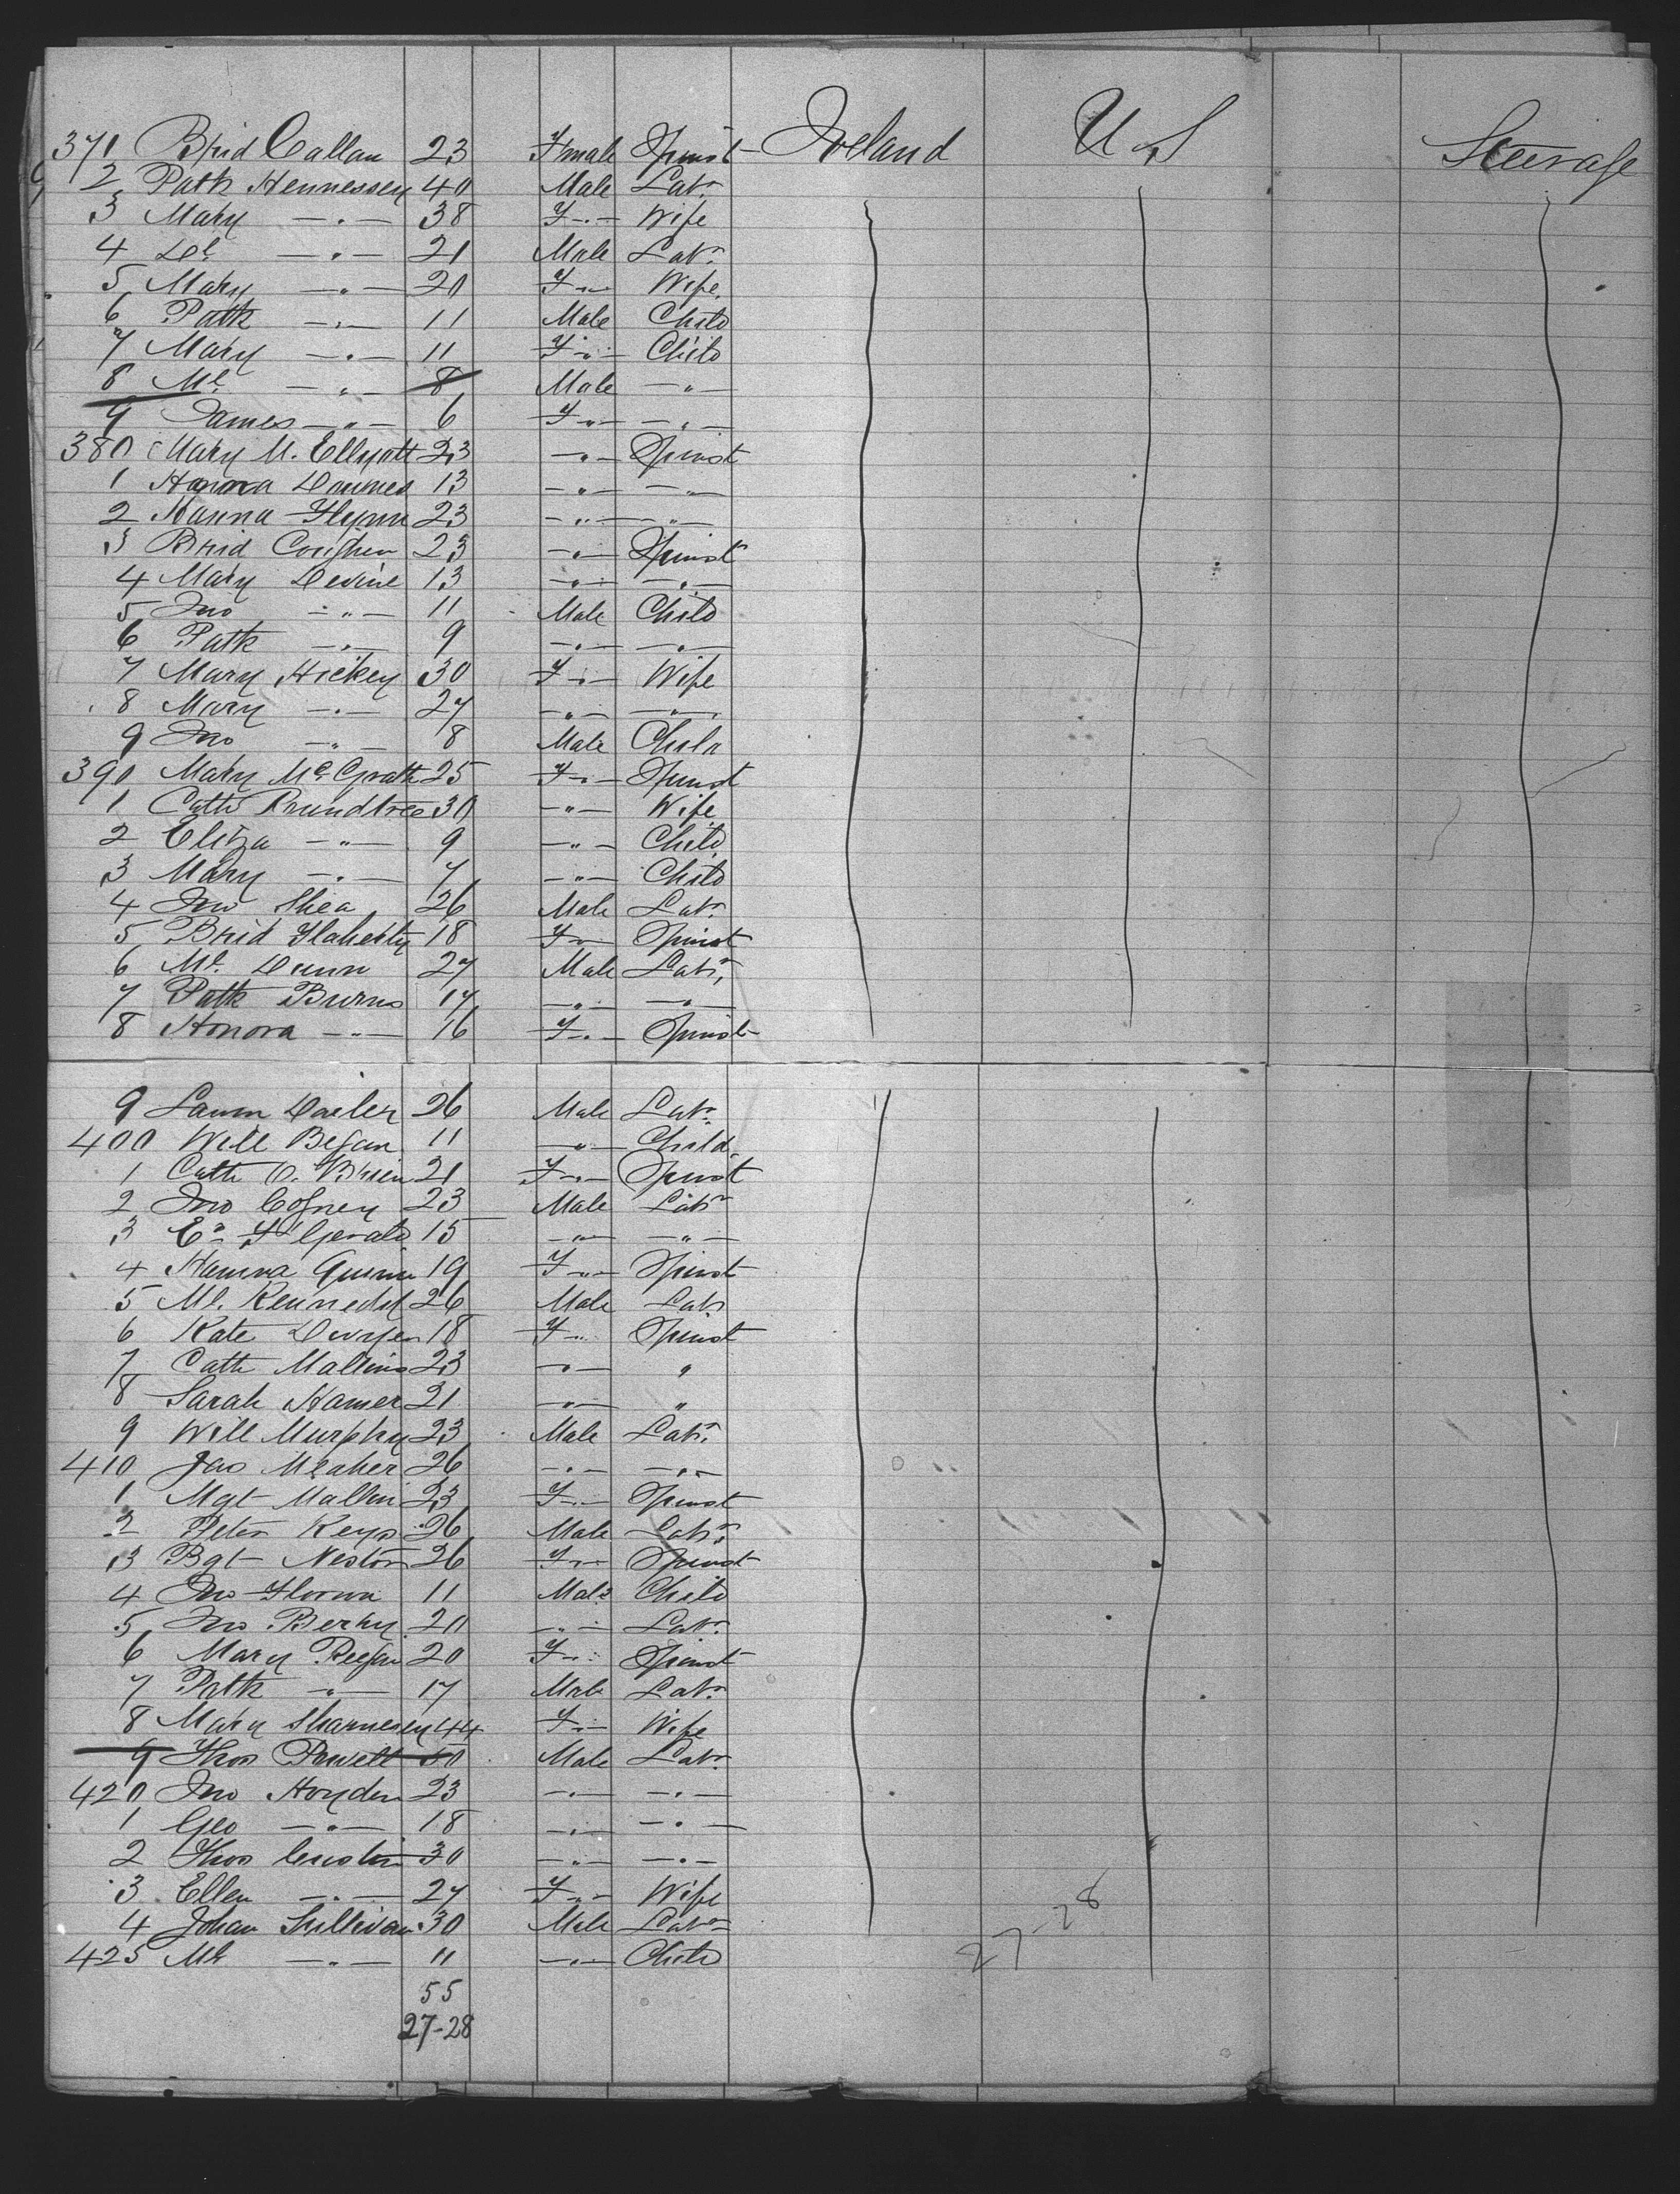 371 Brid Callan 23 Fmale Spinst Ireland U S Steerage
2 Patk Hennessey 40 Male Labr
3 Mary —"— 38 F—"— Wife
4 Dl —"— 21 Male Labr
5 Mary —"— 20 F—"— Wife
6 Patk —"— 11 Male Child
7 Mary —"— 11 F—"— Child
8 Ml —"— 8 Male —"—
9 James —"— 6 F—"— —"—
380 Mary M. Ellyott 23 —"— Spinst
1 Honora 13 —"— —"—
2 Hanna Flynn 23 —"— —"—
3 Brid 23 —"— Spinst
4 Mary Devine 13 —"— —"—
5 Jno —"— 11 Male Child
6 Patk —"— 9 —"— —"—
7 Mary Hickey 30 F—"— Wife
8 Mary —"— 27 —"— —"—
9 Jno —"— 8 Male Child
390 Mary McGrath 25 F—"— Spinst
1 Cath Roundtree 30 —"— Wife
2 Eliza —"— 9 —"— Child
3 Mary —"— 7 —"— Child
4 Jno Shea 26 Male Labr
5 Brid Flaherty 18 F—"— Spinst
6 Ml. Dunn 27 Male Labr
7 Patk Burns 17 —"— —"—
8 Honora —"— 16 F—"— Spinst
9 26 Male Labr
400 Will Began 11 —"— Child
1 Cath O. Brien 21 F—"— Spinst
2 Jno Cogney 23 Male Labr
3 Ed FtzGerald 15 —"— —"—
4 Hanora Quinn 19 F—"— Spinst
5 Ml. Kennedy 26 Male Labr
6 Kate Dwyer 18 F—"— Spinst
7 Cath Mallins 23 —"— "
8 Sarah Hamer 21 —"— "
9 Will Murphy 23 Male Labr
410 Jas Meaher 26 —"— —"—
1 Mgt Mallin 23 F—"— Spinst
2 Peter Keys 26 Male Labr
3 Bgt Nestor 26 F—"— Spinst
4 Jno 11 Male Child
5 Jno Berry 20 —"— Labr
6 Mary Regan 20 F—"— Spinst
7 Patk —"— 17 Male Labr
8 Mary Shannessy 44 F—"— Wife
9 Thos Powell 50 Male Labr
420 Jno Hoyden 23 —"— —"—
1 Geo —"— 18 —"— —"—
2 Thos 30 —"— —"—
3 Ellen —"— 27 F—"— Wife
4 Johan Sullivan 30 Male Labr
425 Ml —"— 11 —"— Child
27-28
55
27-28